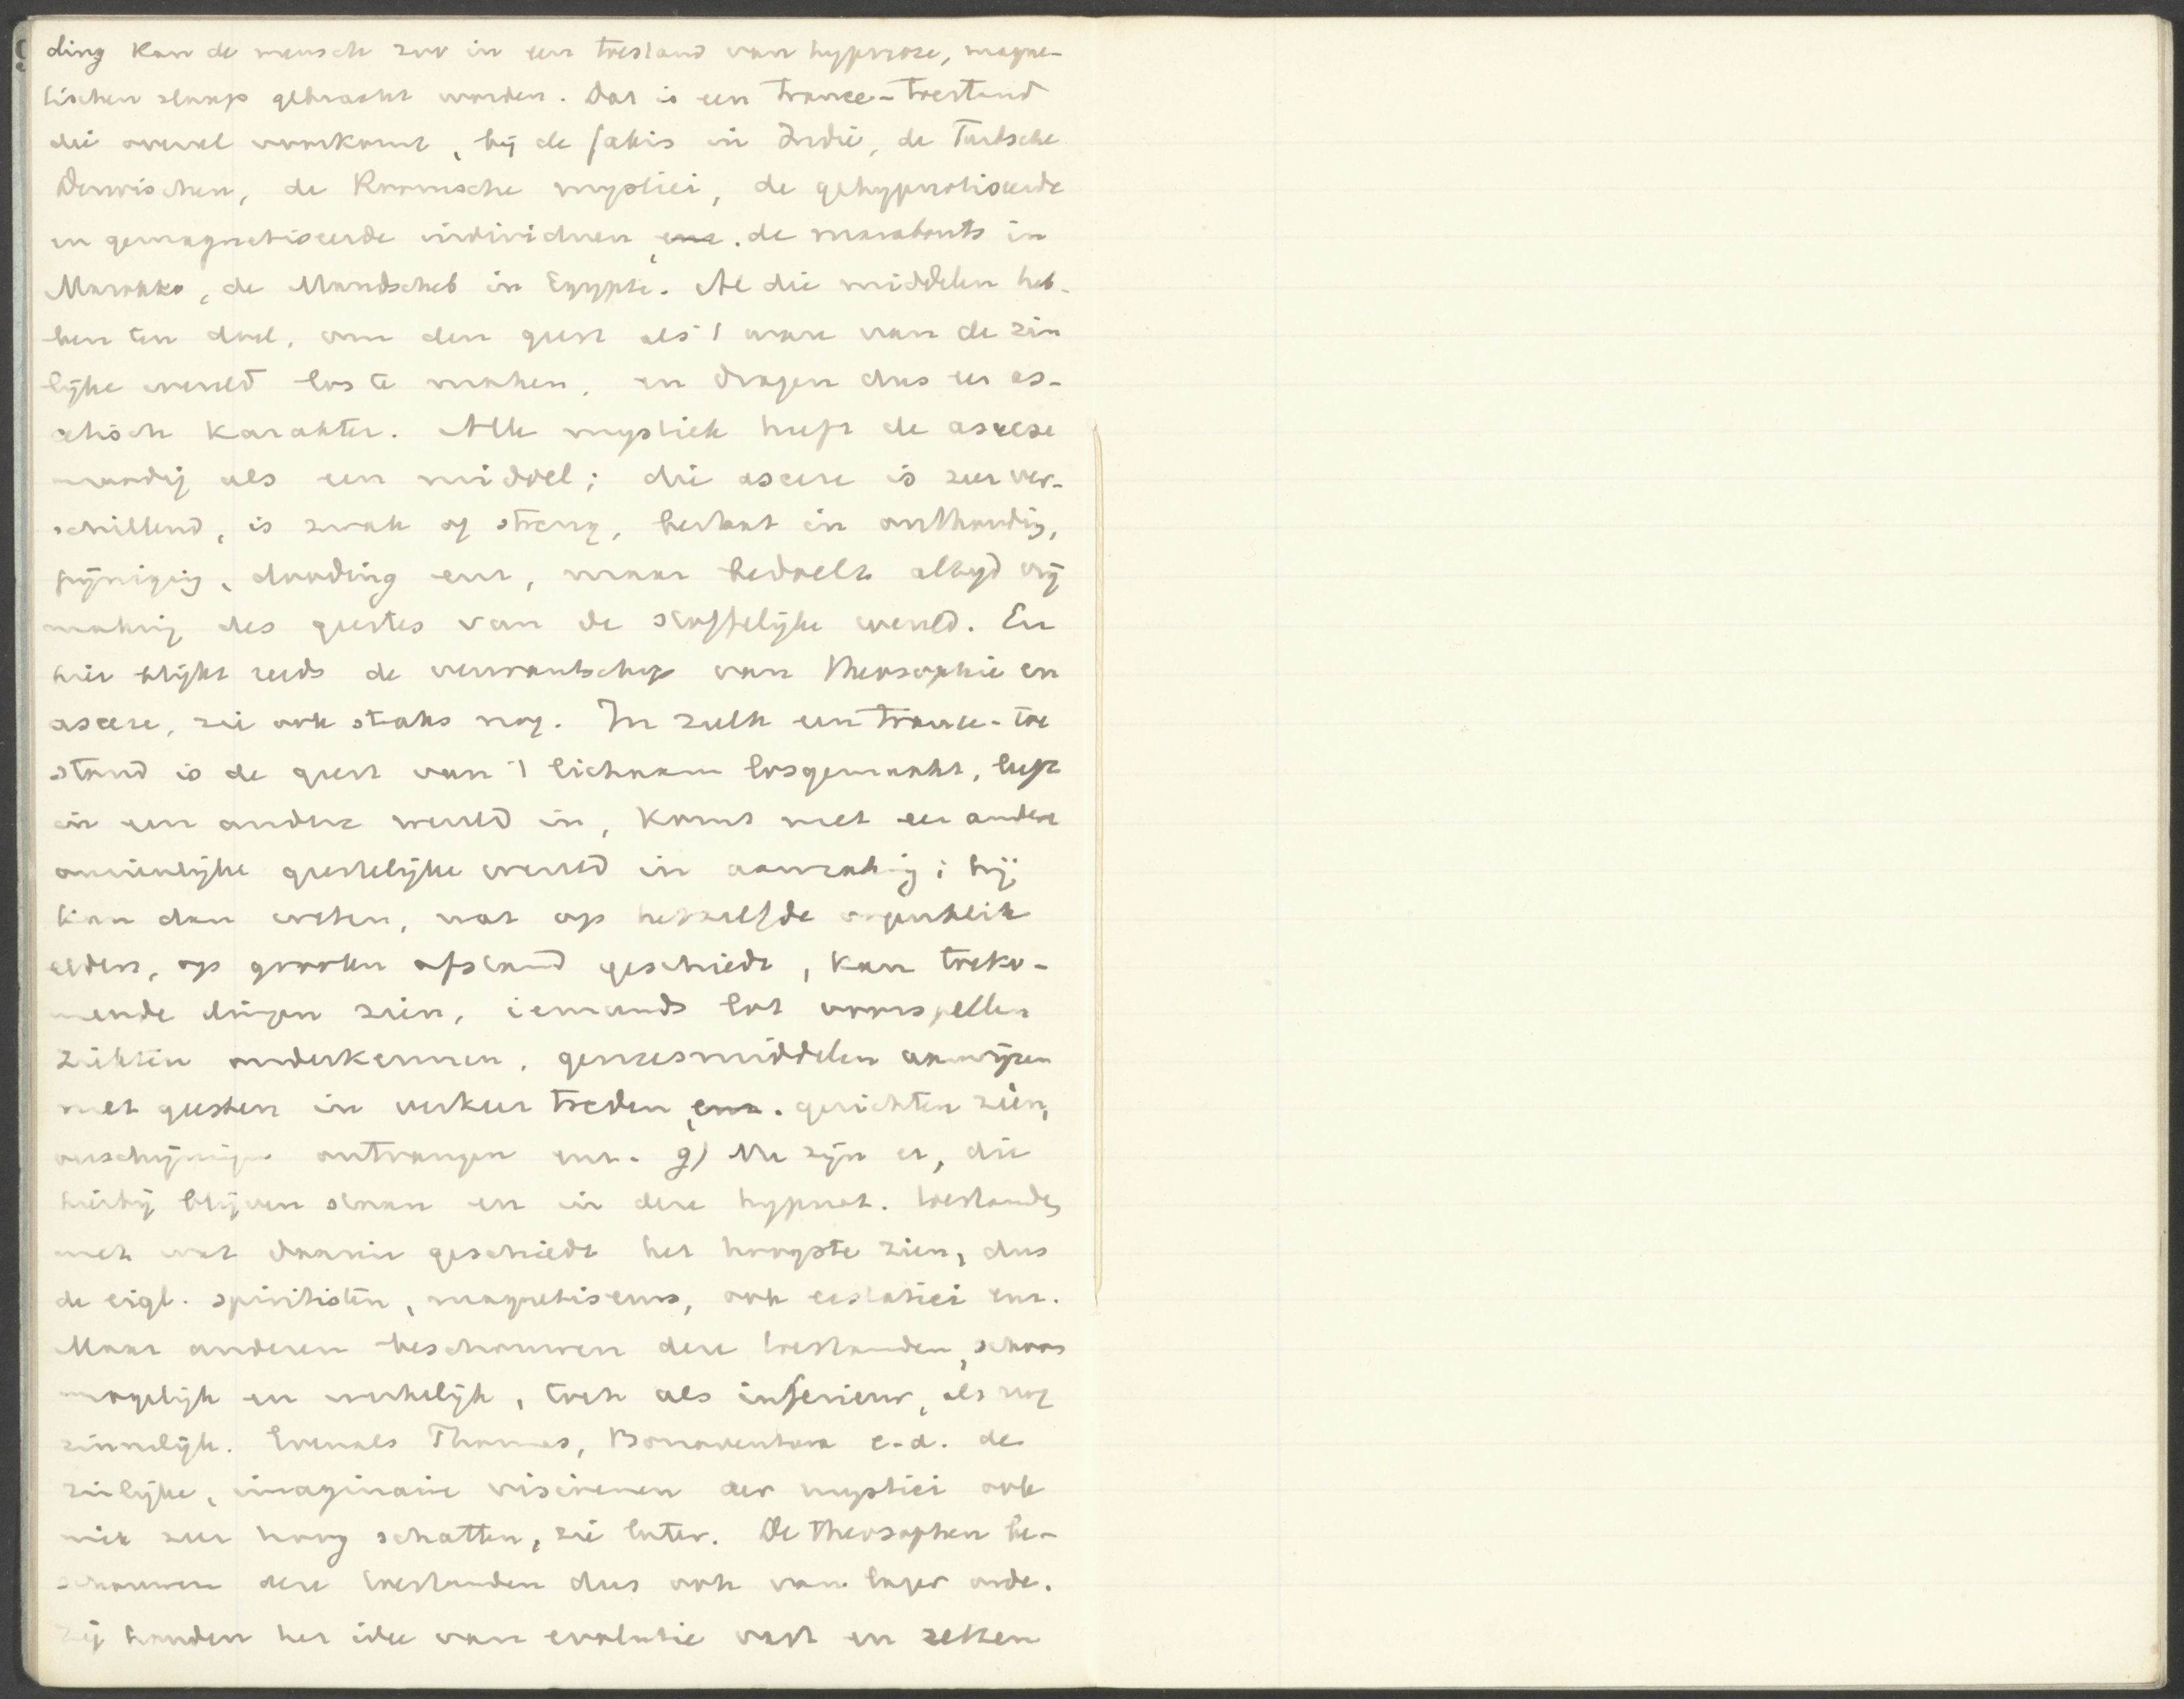 ding kan de mensch zoo in een toestand van hypnose, magne-
tischen slaap gebracht worden. Dat is een trance-toestand
die overal voorkomt, bij de fakirs in Indië, de Turksche
Derwischen, de Roomsche mystici, de gehypnotiseerde
en gemagnetiseerde individuen, enz. de marabouts in
Marokko, de Mandscheb in Egypte. Al die middelen heb-
ben ten doel, om den geest als 't ware van de zin
lijke wereld los te maken, en dragen dus een as-
cetisch karakter. Alle mystiek heeft de ascese
noodig als een middel; die ascese is zeer ver-
schillend, is zwak of streng, bestaat in onthouding,
pijniging, dooding enz, maar bedoelt altijd vrij
making des geestes van de stoffelijke wereld. En
hier blijkt reeds de verwantschap van Theosophie en
ascese, zie ook straks nog. In zulk een trance-toe
stand is de geest van 't lichaam losgemaakt, leeft
in een andere wereld in, komt met een andere
onzienlijke geestelijke wereld in aanraking; hij
kan dan weten, wat op hetzelfde oogenblik
elders, op grooten afstand geschiedt, kan toeko-
mende dingen zien, iemands lot voorspellen
ziekten onderkennen, geneesmiddelen aanwijzen
met geesten in verkeer treden, enz. gezichten zien,
verschijningen ontvangen enz. g) Nu zijn er, die
hierbij blijven staan en in deze hypnot. toestanden
met wat daarin geschiedt het hoogste zien, dus
de eigl. spiritisten, magnetiseurs, ook ecstatici enz.
Maar anderen beschouwen deze toestanden, schoon
mogelijk en werkelijk, toch als inferieur, als nog
zinnelijk. Evenals Thomas, Bonaventura e.a. de
zinlijke, imaginaire visioenen der mystici ook
niet zeer hoog schatten, zie later. De theosophen be-
schouwen deze toestanden dus ook van lager orde.
Zij houden het idee van evolutie vast en zetten